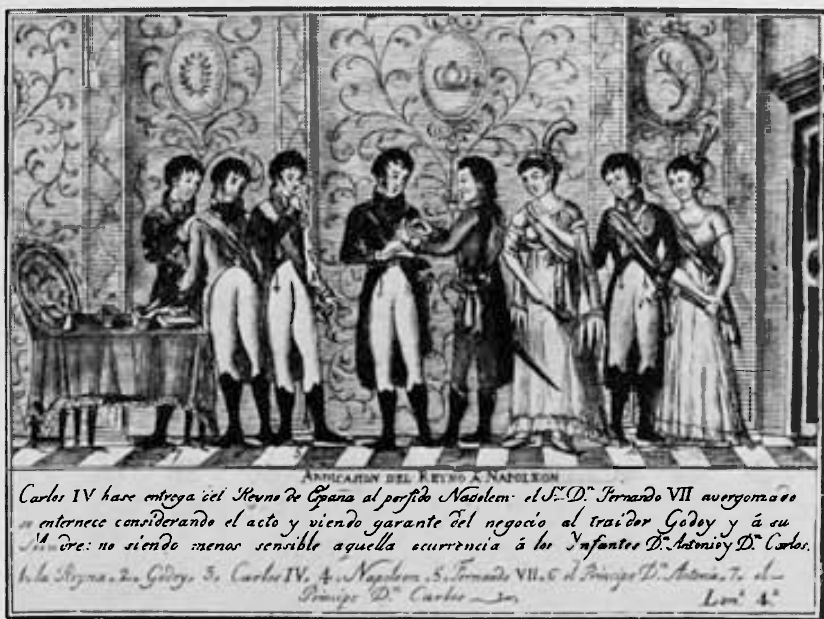 ABDICASION DEL REYNO A NAPOLEON
Carlos IV hase entrega del Reyno de Espana al perfido Napoleon: el Sr. Dn. Fernando VII avergonzado
se enternece considerando el acto y viendo garante del negocio al traidor Godoy y á su
Madre: no siendo menos sensible aquella ocurrencia á los Ynfantes Dn. Antonio y Dn. Carlos.
1. la Reyna. 2. Godoy. 3. Carlos IV. 4. Napoleon. 5. Fernando VII. 6 el Principe Dn. Antonio. 7. el
Principe Dn. Carlos
4.a